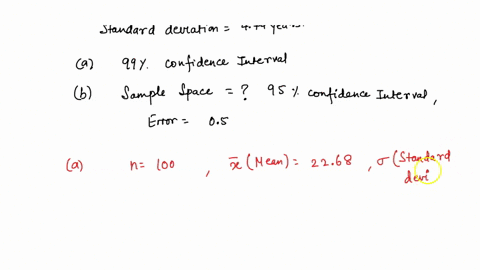 Standard deviation = 4.44 years.
(a) 99% confidence Interval
(b) Sample Space = ? 95% confidence Interval,
Error = 0.5
(a) n = 100 , x̄ (Mean) = 22.68 , σ (Standard
devi